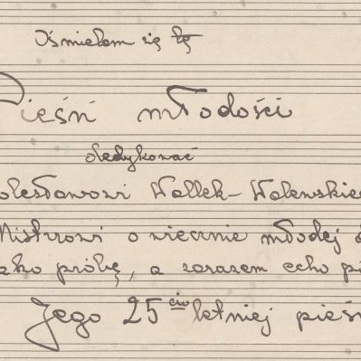 Ośmielam się tę
Pieśń młodości
dedykować
olesławowi Wallek-Walewskie
Mistrzowi o wiecznie młodej d
ako próbę, a zarazem echo pi
Jego 25 cio letniej pieśn